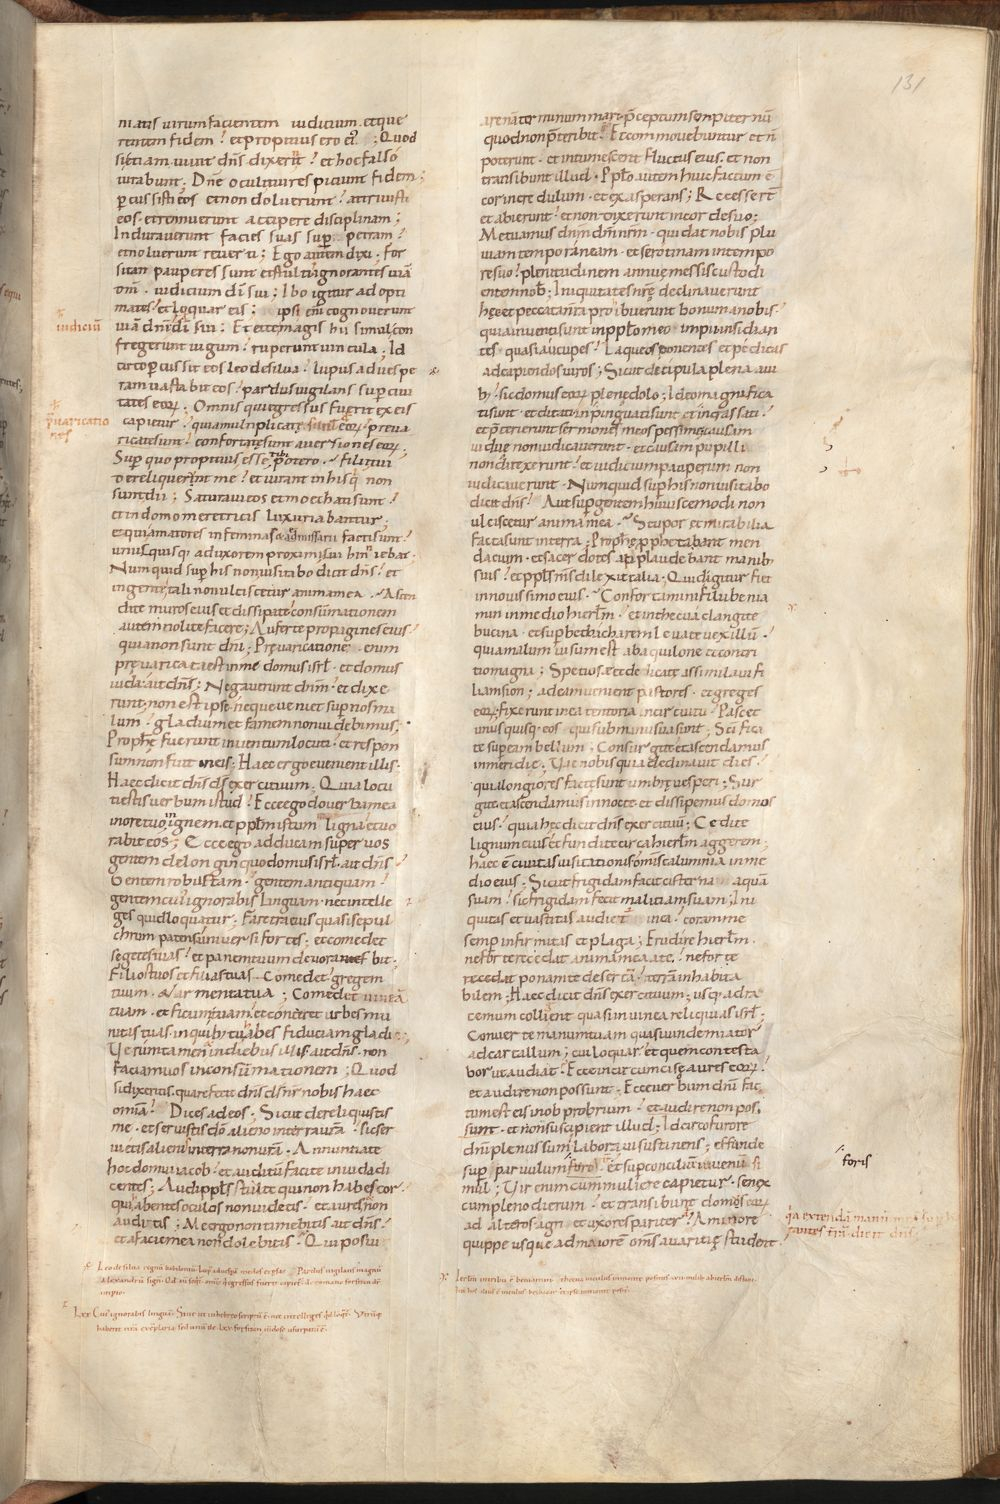 131
niatis uirum facientem iudicium. et que
rentem fidem? et propitius ero ei?; Quod
si etiam uiuit dñs dixerit? et hoc falso
iurabunt; Dñe oculi tui respiciunt fidem;
percussisti eos et non doluerunt? attriuisti
eos. et rennuerunt accipere disciplinam;
Indurauerunt facies suas sup petram?
et noluerunt reuerti; Ego autem dixi. For
sitan pauperes sunt et stulti ignorantes uiã
dñi. iudicium di sui; Ibo igitur ad opti
mates? et loquar eis; ipsi eni cognouerunt
iudiciũ
uiã dñi di sui; Et ecce magis hii simul con
fregerunt iugum? ruperunt uincula; Id
circo percussit eos leo de silua? lupus ad uespe
ram uastabit eos? pardus uigilans sup ciui
tates eoꝝ; Omnis qui egressus fuerit ex eis
puaricatio
nes
capietur? quia multiplicate sunt eoꝝ preua
ricationes? confortate sunt auersiones eoꝝ;
Sup quo propitius esse tibi potero? filii tui
dereliquerunt me? et iurant in his q non
sunt dii; Saturaui eos et moechati sunt?
et in domo meretricis luxuriabantur;
equi amatores in feminas & admissarii facti sunt?
unusquisq; ad uxorem proximi sui hinniebat;
Numquid sup his non uisitabo dicit dñs? et
in gente tali non ulciscetur anima mea? Ascen
dite muros eius et dissipate consũmationem
autem nolite facere; Auferte propagines eius?
quia non sunt dñi; Pręuaricatione enim
pręuaricata est in me domus isrł. et domus
iuda ait dñs; Negauerunt dñm. et dixe
runt. non est ipse. neque ueniet sup nos ma
lum? gladium et famem non uidebimus;
Prophę fuerunt in uentum locuti. et respon
sum non fuit in eis; Haec ergo euenient illis;
Haec dicit dñs ds exercituum; Quia locu
ti estis uerbum istud? Ecce ego do uerba mea
in ore tuo in ignem. et ppłm istum ligna et uo
rabit eos; Ecce ego adducam super uos
gentem de longinquo domus isrł. ait dñs
Gentem robustam? gentem antiquam?
gentem cui ignorabis linguam. nec intelle
ges quid loquatur; Faretra eius quasi sepul
chrum patens. uniuersi fortes; et comedet
segetes tuas? et panem tuum deuorabit.
Filios tuos et filias tuas. Comedet gregem
tuum. & armenta tua; Comedet uineã
tuam. et ficum tuam. et conteret urbes mu
nitas tuas. in quibꝫ tu habes fiduciam gladio;
Uerumtamen in diebus illis. ait dñs. non
faciam uos in consũmationem; Quod
si dixeritis. quare fecit dñs ds nr nobis haec
omnia? Dices ad eos. Sicut dereliquistis
me. et seruistis do alieno in terra urã. sic ser
uietis alienis in terra non urã. Annuntiate
hoc domui iacob. et auditum facite in iuda di
centes; Audi ppłs stulte qui non habes cor.
qui habentes oculos non uidetis. et aures non
auditis; Me ergo non timebitis ait dñs?
et a facie mea non dolebitis? Qui posui
arenã terminum mari pceptum sempiternũ
quod non pteribit? Et commouebuntur et ñ
poterunt. et intumescent fluctus eius. et non
transibunt illud. Ppło autem huic factum ẽ
cor incredulum. et exasperans; Recesserũ
et abierunt. et non dixerunt in corde suo;
Metuamus dñm dm nrm. qui dat nobis plu
uiam temporaneam. et serotinam in tempo
re suo? plenitudinem annuę messis custodi
entem nob; Iniquitates nrę declinauerunt
hęc et peccata nrã prohibuerunt bonum a nobis.
quia inuenti sunt in ppło meo impii insidian
tes. quasi aucupes? Laqueos ponentes et pedicas
ad capiendos uiros; Sicut decipula plena aui
bꝫ. sic domus eoꝝ plenę dolo; Ideo magnifica
ti sunt. et ditati. inpinguati sunt et incrassati?
et pterierunt sermones meos pessime. causam
uiduę non iudicauerunt. et causam pupilli
non direxerunt? et iudicium pauperum non
iudicauerunt. Numquid sup his non uisitabo
dicit dñs? Aut sup gentem huiuscemodi non
ulciscetur anima mea? Stupor et mirabilia
facta sunt in terra; Prophę pphetabant men
dacium. et sacerdotes applaudebant manibꝫ
suis? et ppłs ms dilexit talia; Quid igitur fiet
in nouissimo eius? Confortamini filii benia
min in medio hierłm. et in thecua clangite
bucina. et sup bethcharem leuate uexillũ.
quia malum uisum est ab aquilone et contri
tio magna; Speciosae et delicatę assimilaui fi
liam sion; ad eam uenient pastores. et greges
eoꝝ. fixerunt in ea tentoria in circuitu? Pascet
unusquisq; eos qui sub manu sua sunt; Sci fica
te sup eam bellum? Consurgite et ascendamus
in meridie; Uae nobis quia declinauit dies?
quia longiores factę sunt umbrę uesperi; Sur
gite et ascendamus in nocte. et dissipemus domos
eius? quia hęc dicit dñs exercituũ; Cedite
lignum eius et fundite circa hierłm aggerem;
haec ẽ ciuitas uisitationis omis calumnia in me
dio eius; Sicut frigidam facit cisterna aquã
suam? sic frigidam fecit malitiam suam; Ini
quitas et uastitas audietur in ea? coram me
semp infirmitas et plaga; Erudire hierłm.
ne forte recedat anima mea a te? ne forte
te ponam te desertã? terrã inhabita
bilem; Haec dicit dñs exercituum; usq; ad ra
cemum colligent quasi in uinea reliquias isrł;
Conuerte manum tuam quasi uindemiator
ad cartallum; cui loquar et quem contesta
bor ut audiat? Ecce incircumcisę aures eoꝝ?
et audire non possunt. Ecce uerbum dñi fac
tum est eis in obprobrium? et audire non pos
sunt. et non suscipient illud; Idcirco furore
dñi plenus sum. laboraui sustinens; effunde
sup paruulum foris? et sup concilium iuuenũ si
foris
mul; Uir enim cum muliere capietur. senex
cum pleno dierum? et transibunt domos eoꝝ
ad alteros. agri et uxores pariter? A minore
quippe usque ad maiorem omis auaritię student
qa extendã manũ
tantes trã dicit dñs
Leo de silua regnũ babiloniũ. lup aduesp medos Pardus uigilans magnũ
alexandrũ sign.
Lxx. Cui ignorabis linguam.